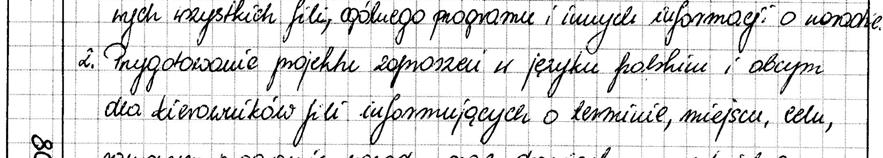 nych wszystkich filii, ogólnego programu i innych informacji o naradzie.
2. Przygotowanie projektu zaproszeń w języku polskim i obcym
dla kierowników filii informujących o terminie, miejscu, celu,